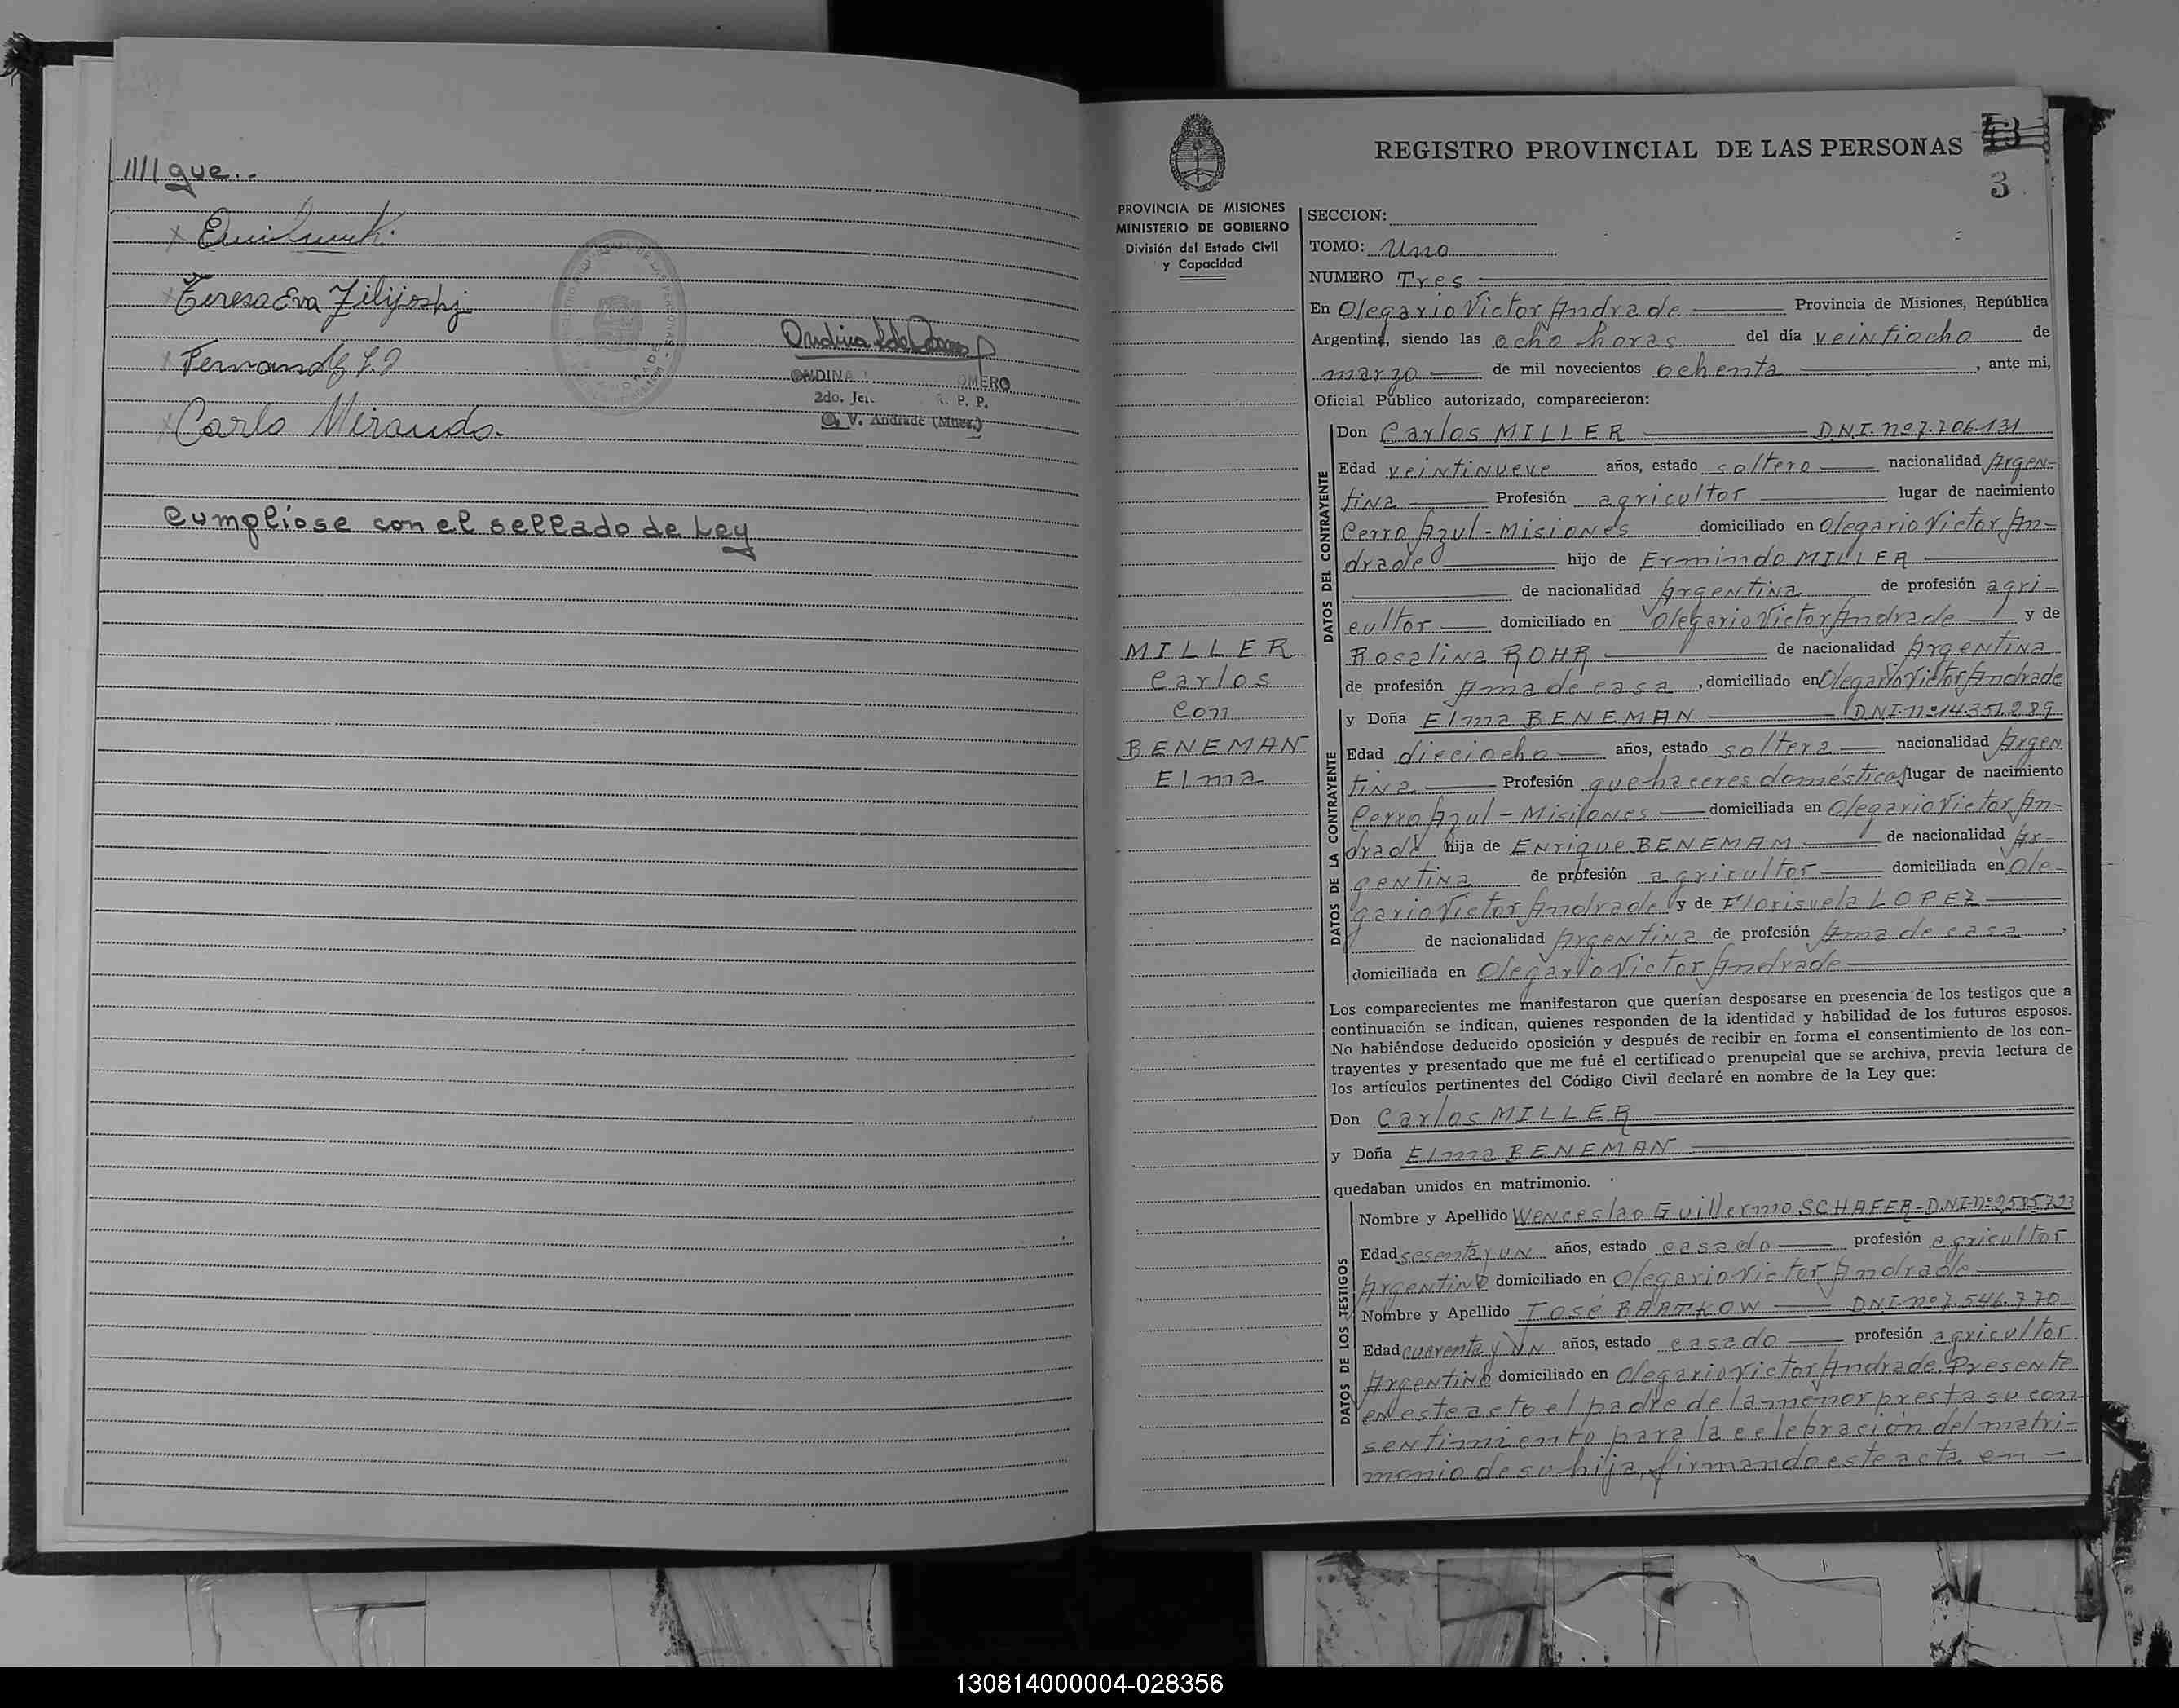 ////que..
Teresa Eva Filijoshj
Carlo Miranda.
ONDINA OMERO
2do. Jef R. P. P.
O. V. Andrade (Mnes.)
Cumplíose con el sellado de Ley
REGISTRO PROVINCIAL DE LAS PERSONAS
3
PROVINCIA DE MISIONES
MINISTERIO DE GOBIERNO
División del Estado Civil
y Capacidad
MILLER
Carlos
con
BENEMAN
Elma
SECCION:
TOMO: Uno
NUMERO Tres
En Olegario Victor Andrade Provincia de Misiones, República
Argentina, siendo las ocho horas del día veintiocho de
marzo de mil novecientos ochenta, ante mi,
Oficial Público autorizado, comparecieron:
DATOS DEL CONTRAYENTE
Don Carlos MILLER D.N.I. nº 7.706.131
Edad veintinueve años, estado soltero nacionalidad Argen-
tina Profesión agricultor lugar de nacimiento
Cerro Azul - Misiones domiciliado en Olegario Victor An-
drade hijo de Ermindo MILLER
de nacionalidad Argentina de profesión agri-
cultor domiciliado en Olegario Victor Andrade y de
Rosalina ROHR de nacionalidad Argentina
de profesión Ama de casa, domiciliado en Olegario Victor Andrade
DATOS DE LA CONTRAYENTE
y Doña Elma BENEMAN DNI-nº 14.351.289
Edad dieciocho años, estado soltera nacionalidad Argen
tina Profesión quehaceres domésticos lugar de nacimiento
Cerro Azul - Misiones domiciliada en Olegario Victor An-
drade hija de Enrique BENEMAM de nacionalidad Ar-
gentina de profesión agricultor domiciliada en Ole-
gario Victor Andrade y de Florisvela LOPEZ
de nacionalidad Argentina de profesión Ama de casa,
domiciliada en Olegario Victor Andrade
Los comparecientes me manifestaron que querían desposarse en presencia de los testigos que a
continuación se indican, quienes responden de la identidad y habilidad de los futuros esposos.
No habiéndose deducido oposición y después de recibir en forma el consentimiento de los con-
trayentes y presentado que me fué el certificado prenupcial que se archiva, previa lectura de
los artículos pertinentes del Código Civil declaré en nombre de la Ley que:
Don Carlos MILLER
y Doña Elma BENEMAN
quedaban unidos en matrimonio.
DATOS DE LOS TESTIGOS
Nombre y Apellido Wenceslao Guillermo SCHAFER-D.N.I-nº 2585723
Edad sesenta y un años, estado casado profesión agricultor
Argentino domiciliado en Olegario Victor Andrade
Nombre y Apellido José BARTKOW D.N.I-nº 7.546.770
Edad cuarenta y un años, estado casado profesión agricultor
Argentino domiciliado en Olegario Victor Andrade. Presente
en este acto el padre de la menor presta su con-
sentimiento para la celebración del matri-
monio de su hija, firmando este acta en -
130814000004-028356